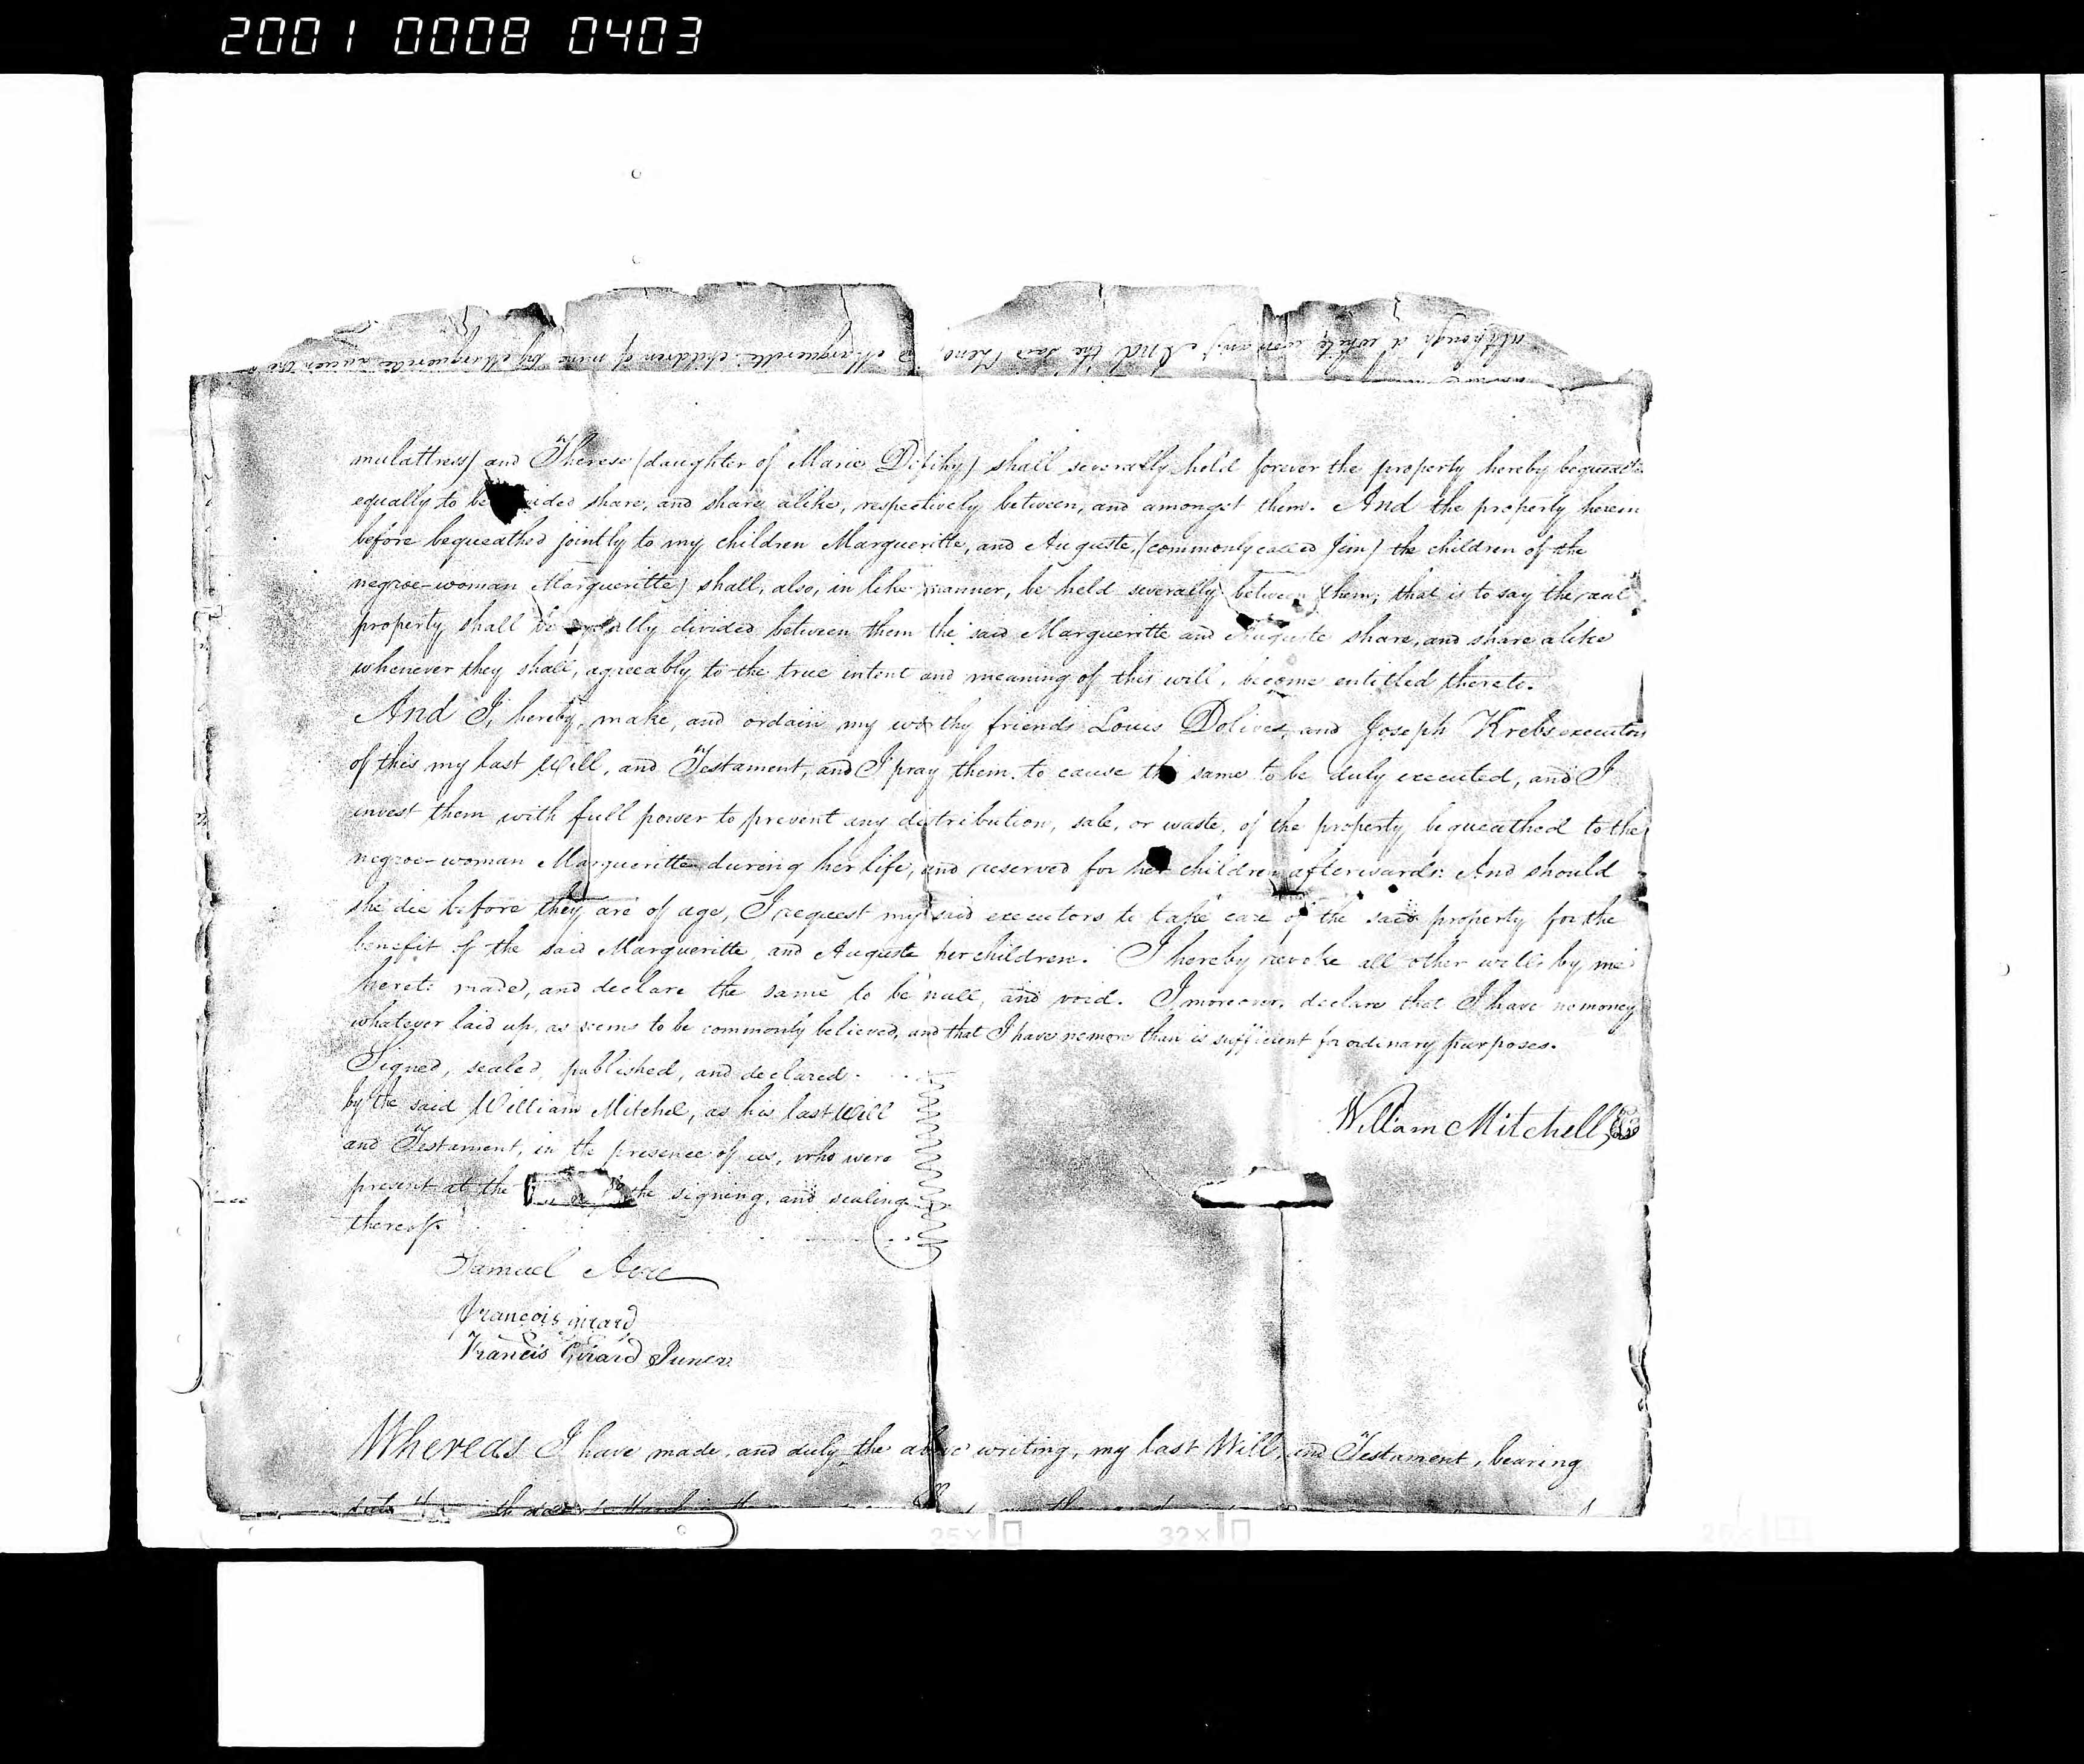 2001 0008 0403
although a white woman) And the said Zeno,
Margueritte children of mine by Margueritte
mulattress) and Therese (daughter of Marie) shall severally hold forever the property hereby
equally to be share, and share alike, respectively between, and amongst them. And the property herein
before bequeathed jointly to my children Margueritte, and Auguste, (commonly called Jim) the children of the
negroe-woman Margueritte) shall, also, in like manner, be held severally between them; that is to say the real
property shall be equally divided between them the said Margueritte and Auguste share, and share alike
whenever they shall, agreeably to the true intent and meaning of this will, become entitled thereto.
And I, hereby, make, and ordain my worthy friends Louis Dolives, and Joseph Krebs executors
of this my last Will, and Testament, and I pray them to cause the same to be duly executed, and I
invest them with full power to prevent any distribution, sale, or waste, of the property bequeathed to the
negroe-woman Margueritte during her life, and reserved for her children afterwards: And should
she die before they are of age, I request my said executors to take care of the said property for the
benefit of the said Margueritte, and Auguste her children. I hereby revoke all other wills by me
hereto made, and declare the same to be null, and void. I moreover, declare that I have no money
whatever laid up, as seems to be commonly believed, and that I have no more than is sufficient for ordinary purposes.
Signed, sealed, published, and declared
by the said William Mitchel, as his last Will
and Testament, in the presence of us, who were
present at the the signing, and sealing
thereof.
William Mitchell
Samuel Acre
francois girard
Francis Girard Junior
Whereas I have made, and duly the above writing, my last Will, and Testament, bearing
25x
32x